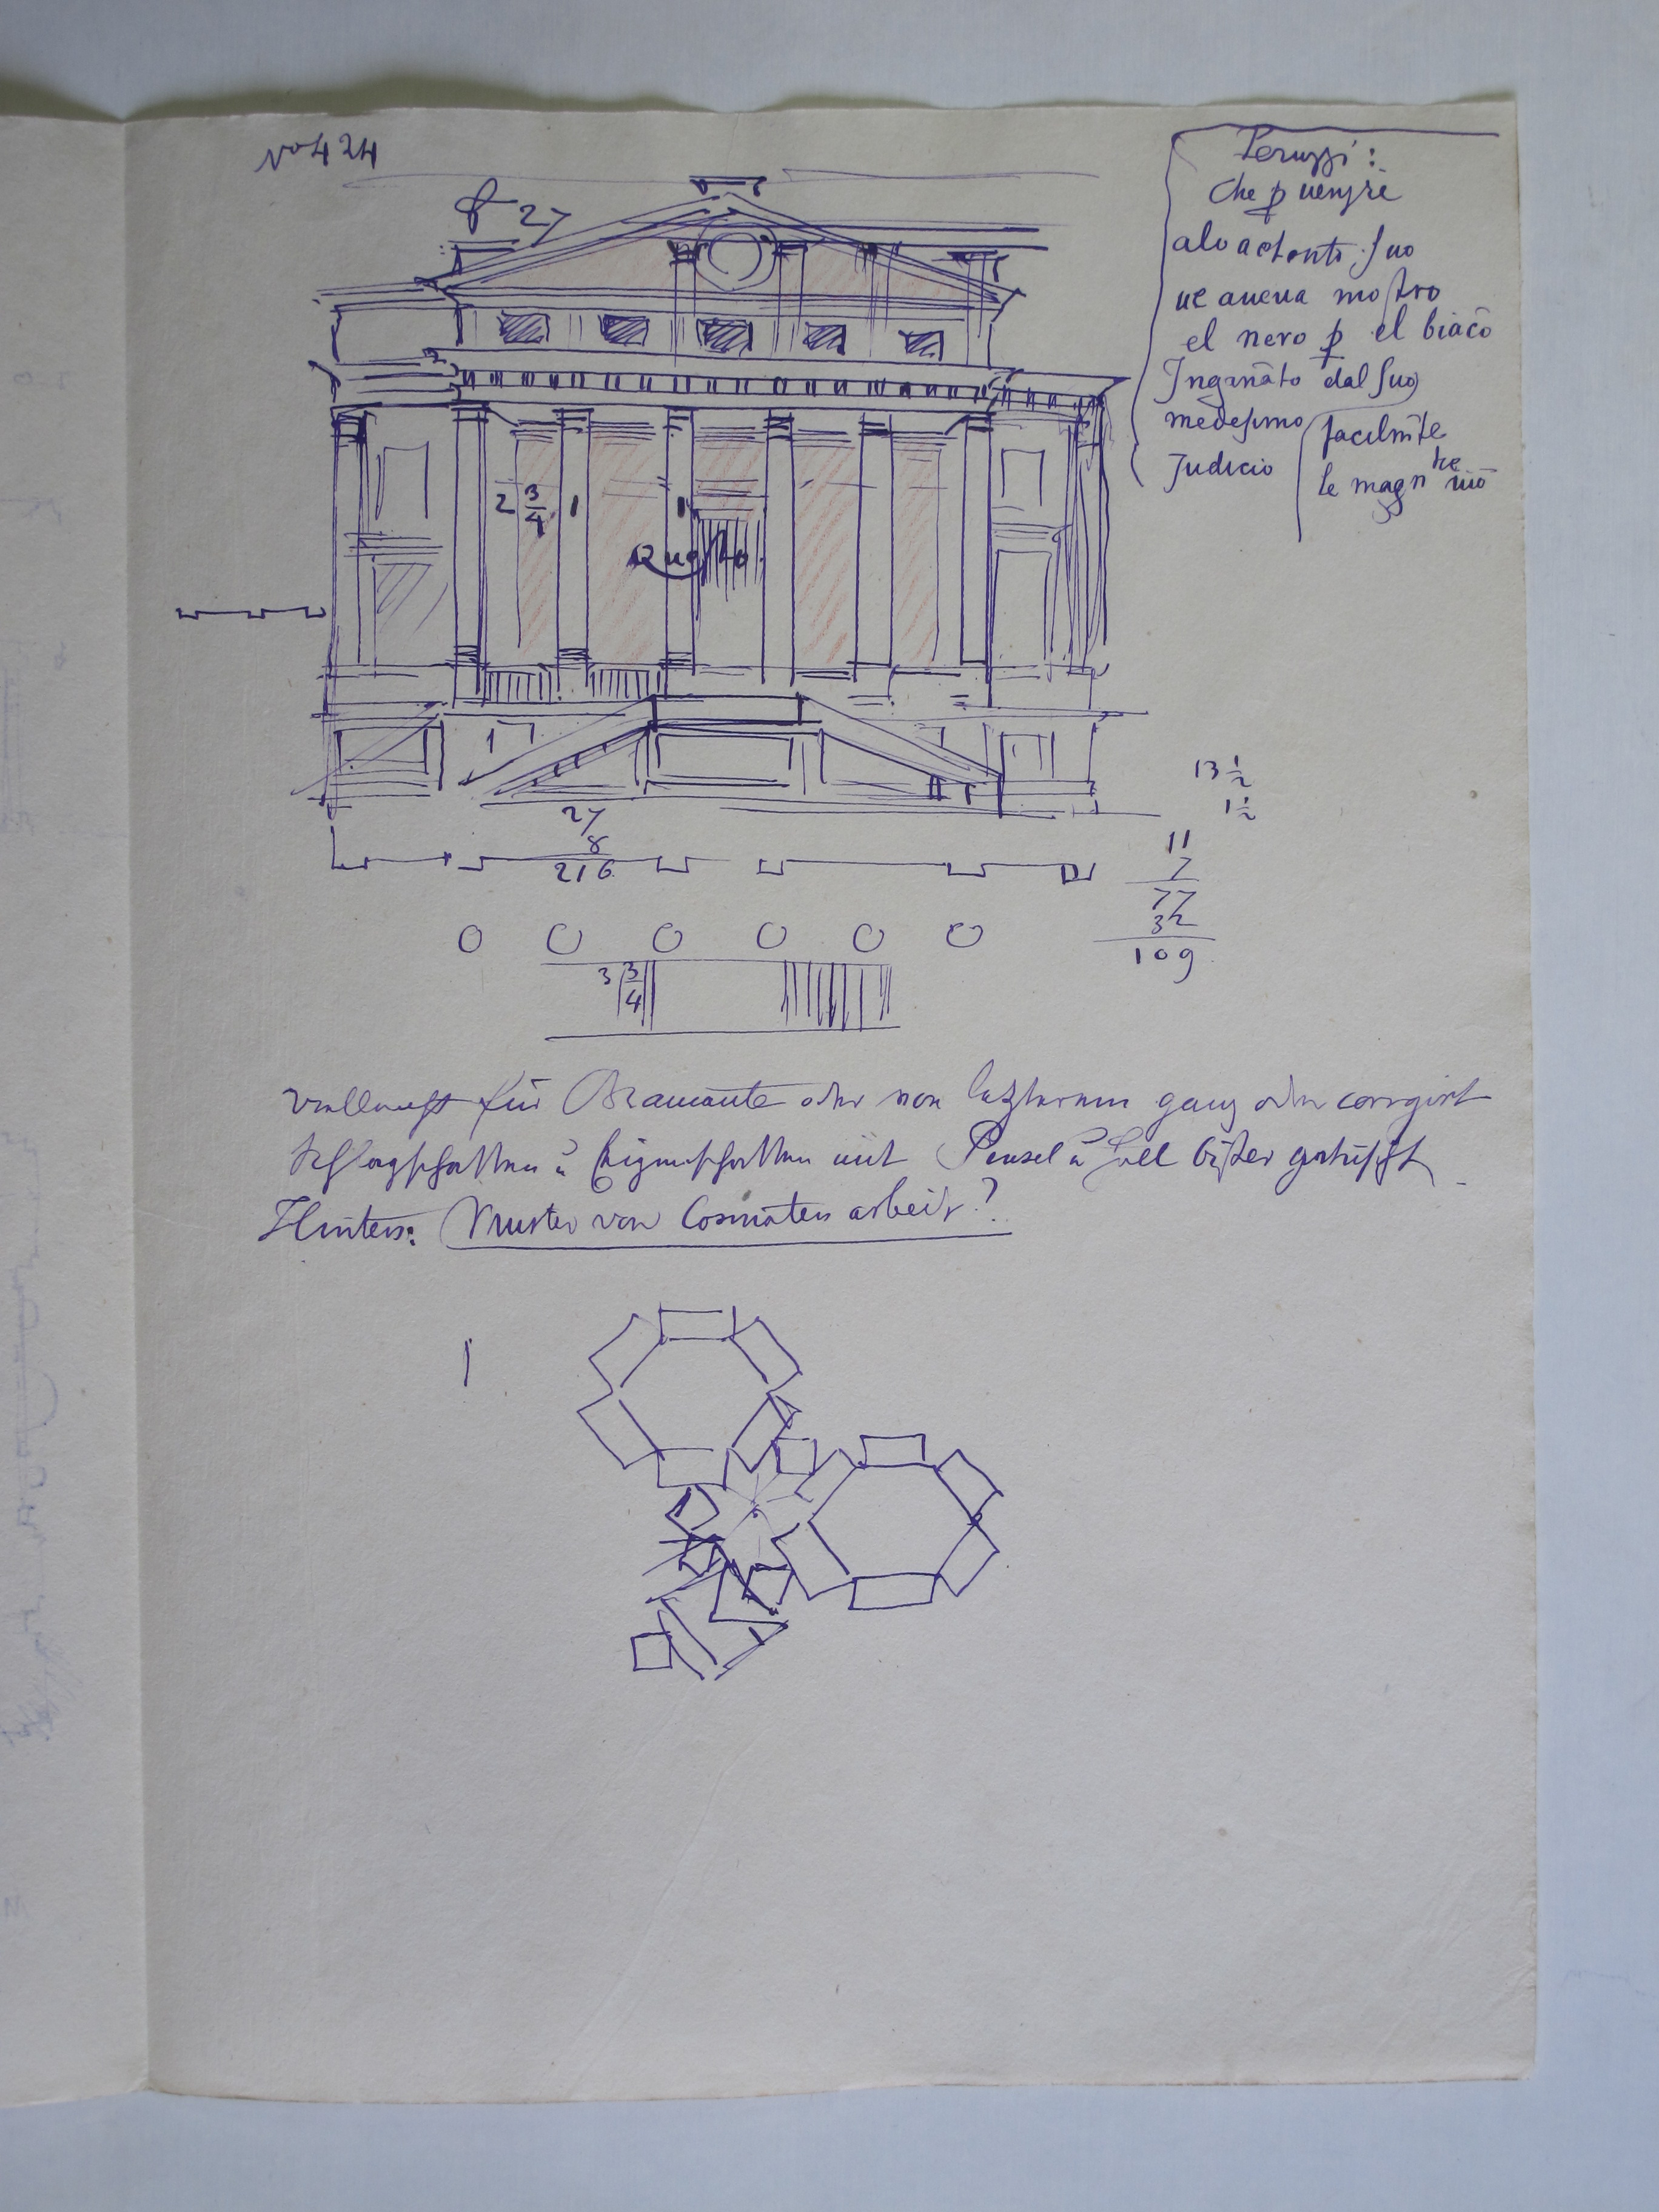 No 424
f 27
Peruzzi:
che p venire
alo actento suo
ne aueua mostro
el nero p el biāco
Ingānato dal suo
medesimo
Judicio
facilmēte
le magn
2 3/4 1 1
Questo
13 1/2
1 1/2
27
8
216
11
7
77
32
109
3 3/4
vielleicht für Bramante oder von letzterem ganz oder corrigirt
Schlagschatten u Eigenschatten mit Pensel u hell bister getuscht
Hinten: Muster von Cosmaten arbeit?
1